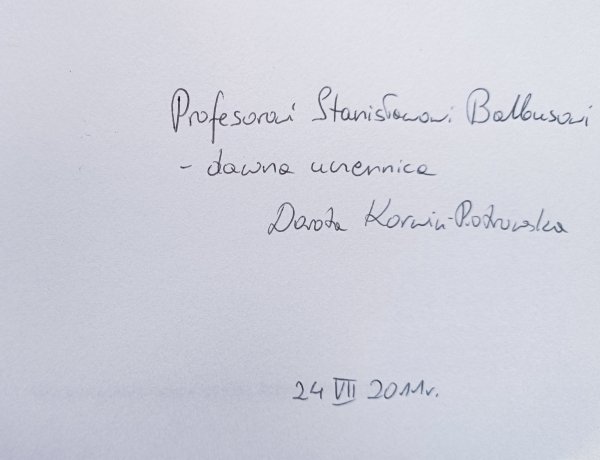 Profesorowi Stanisławowi Balbusowi
- dawna uczennica
Dorota Korwin-Piotrowska
24 VII 2011r.